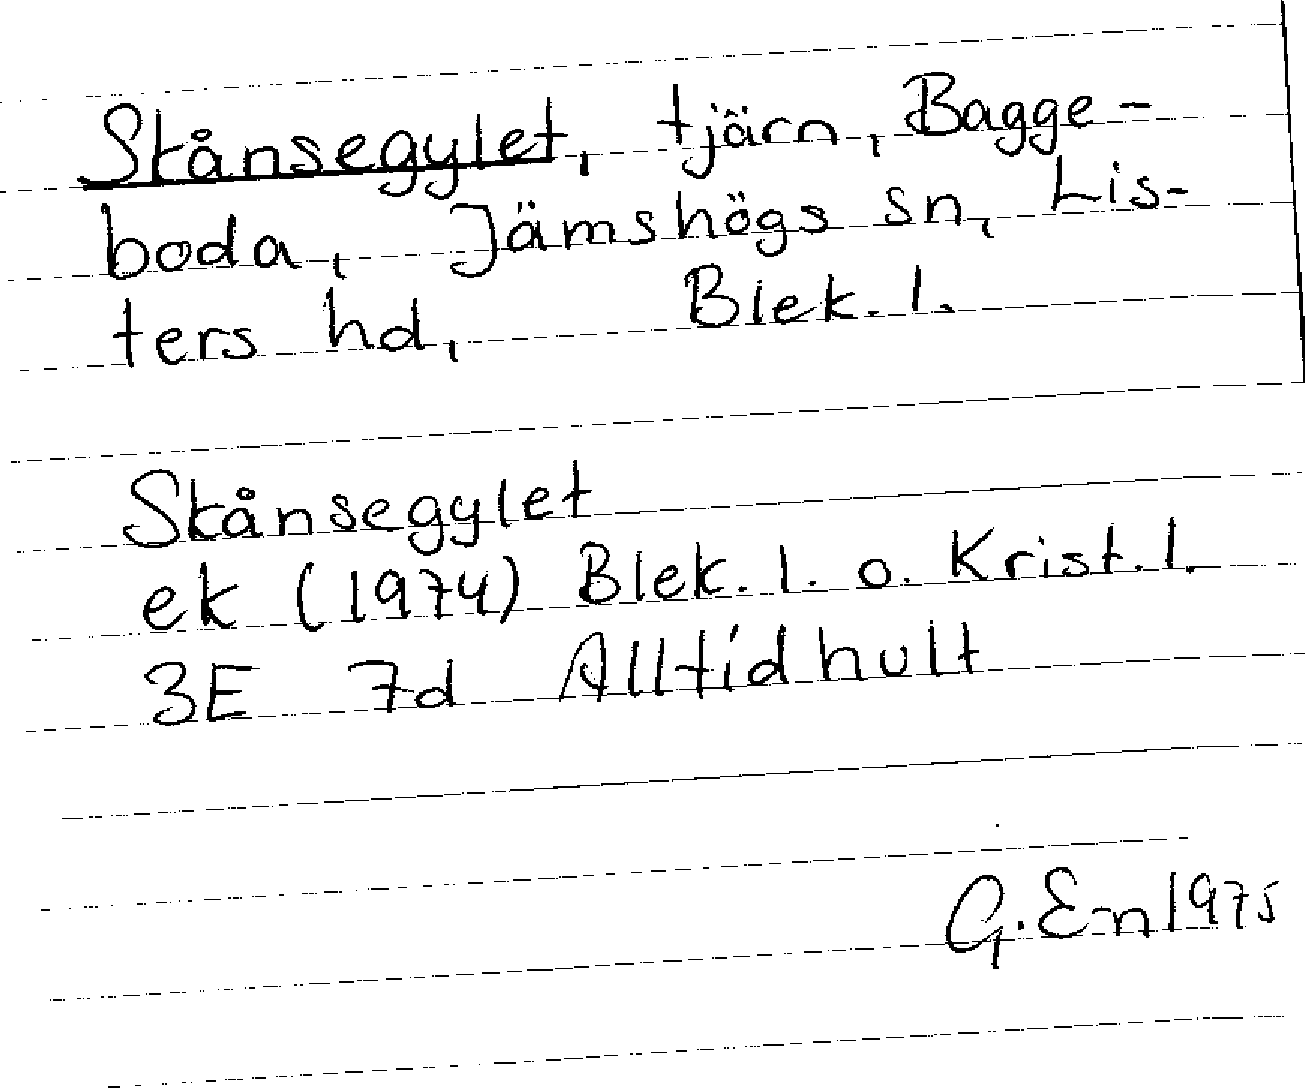 Skånsegylet, tjärn, Bagge-
boda, Jämshögs sn, Lis-
ters hd, Blek. l.
Skånsegylet
ek (1974) Blek. l. o. Krist. l.
3E 7d Alltidhult
G. En 1975